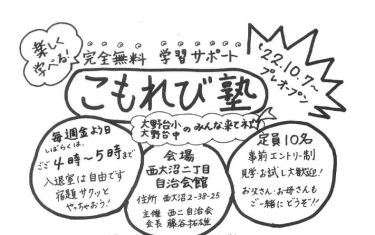 楽しく
学べる!
完全無料 学習サポート
'22.10.7~
プレオープン
こもれび塾
大野台小
大野台中
のみんな来てネ!!
毎週金よう日
しばらくは、
ごご4時~5時まで
入退室は自由です
宿題サクッと
やっちゃおう!
会場
西大沼二丁目
自治会館
住所 西大沼2-38-25
主催 西二自治会
会長 藤谷拓雄
定員10名
事前エントリー制
見学・お試し大歓迎!
お父さん・お母さんも
ご一緒にどうぞ!!